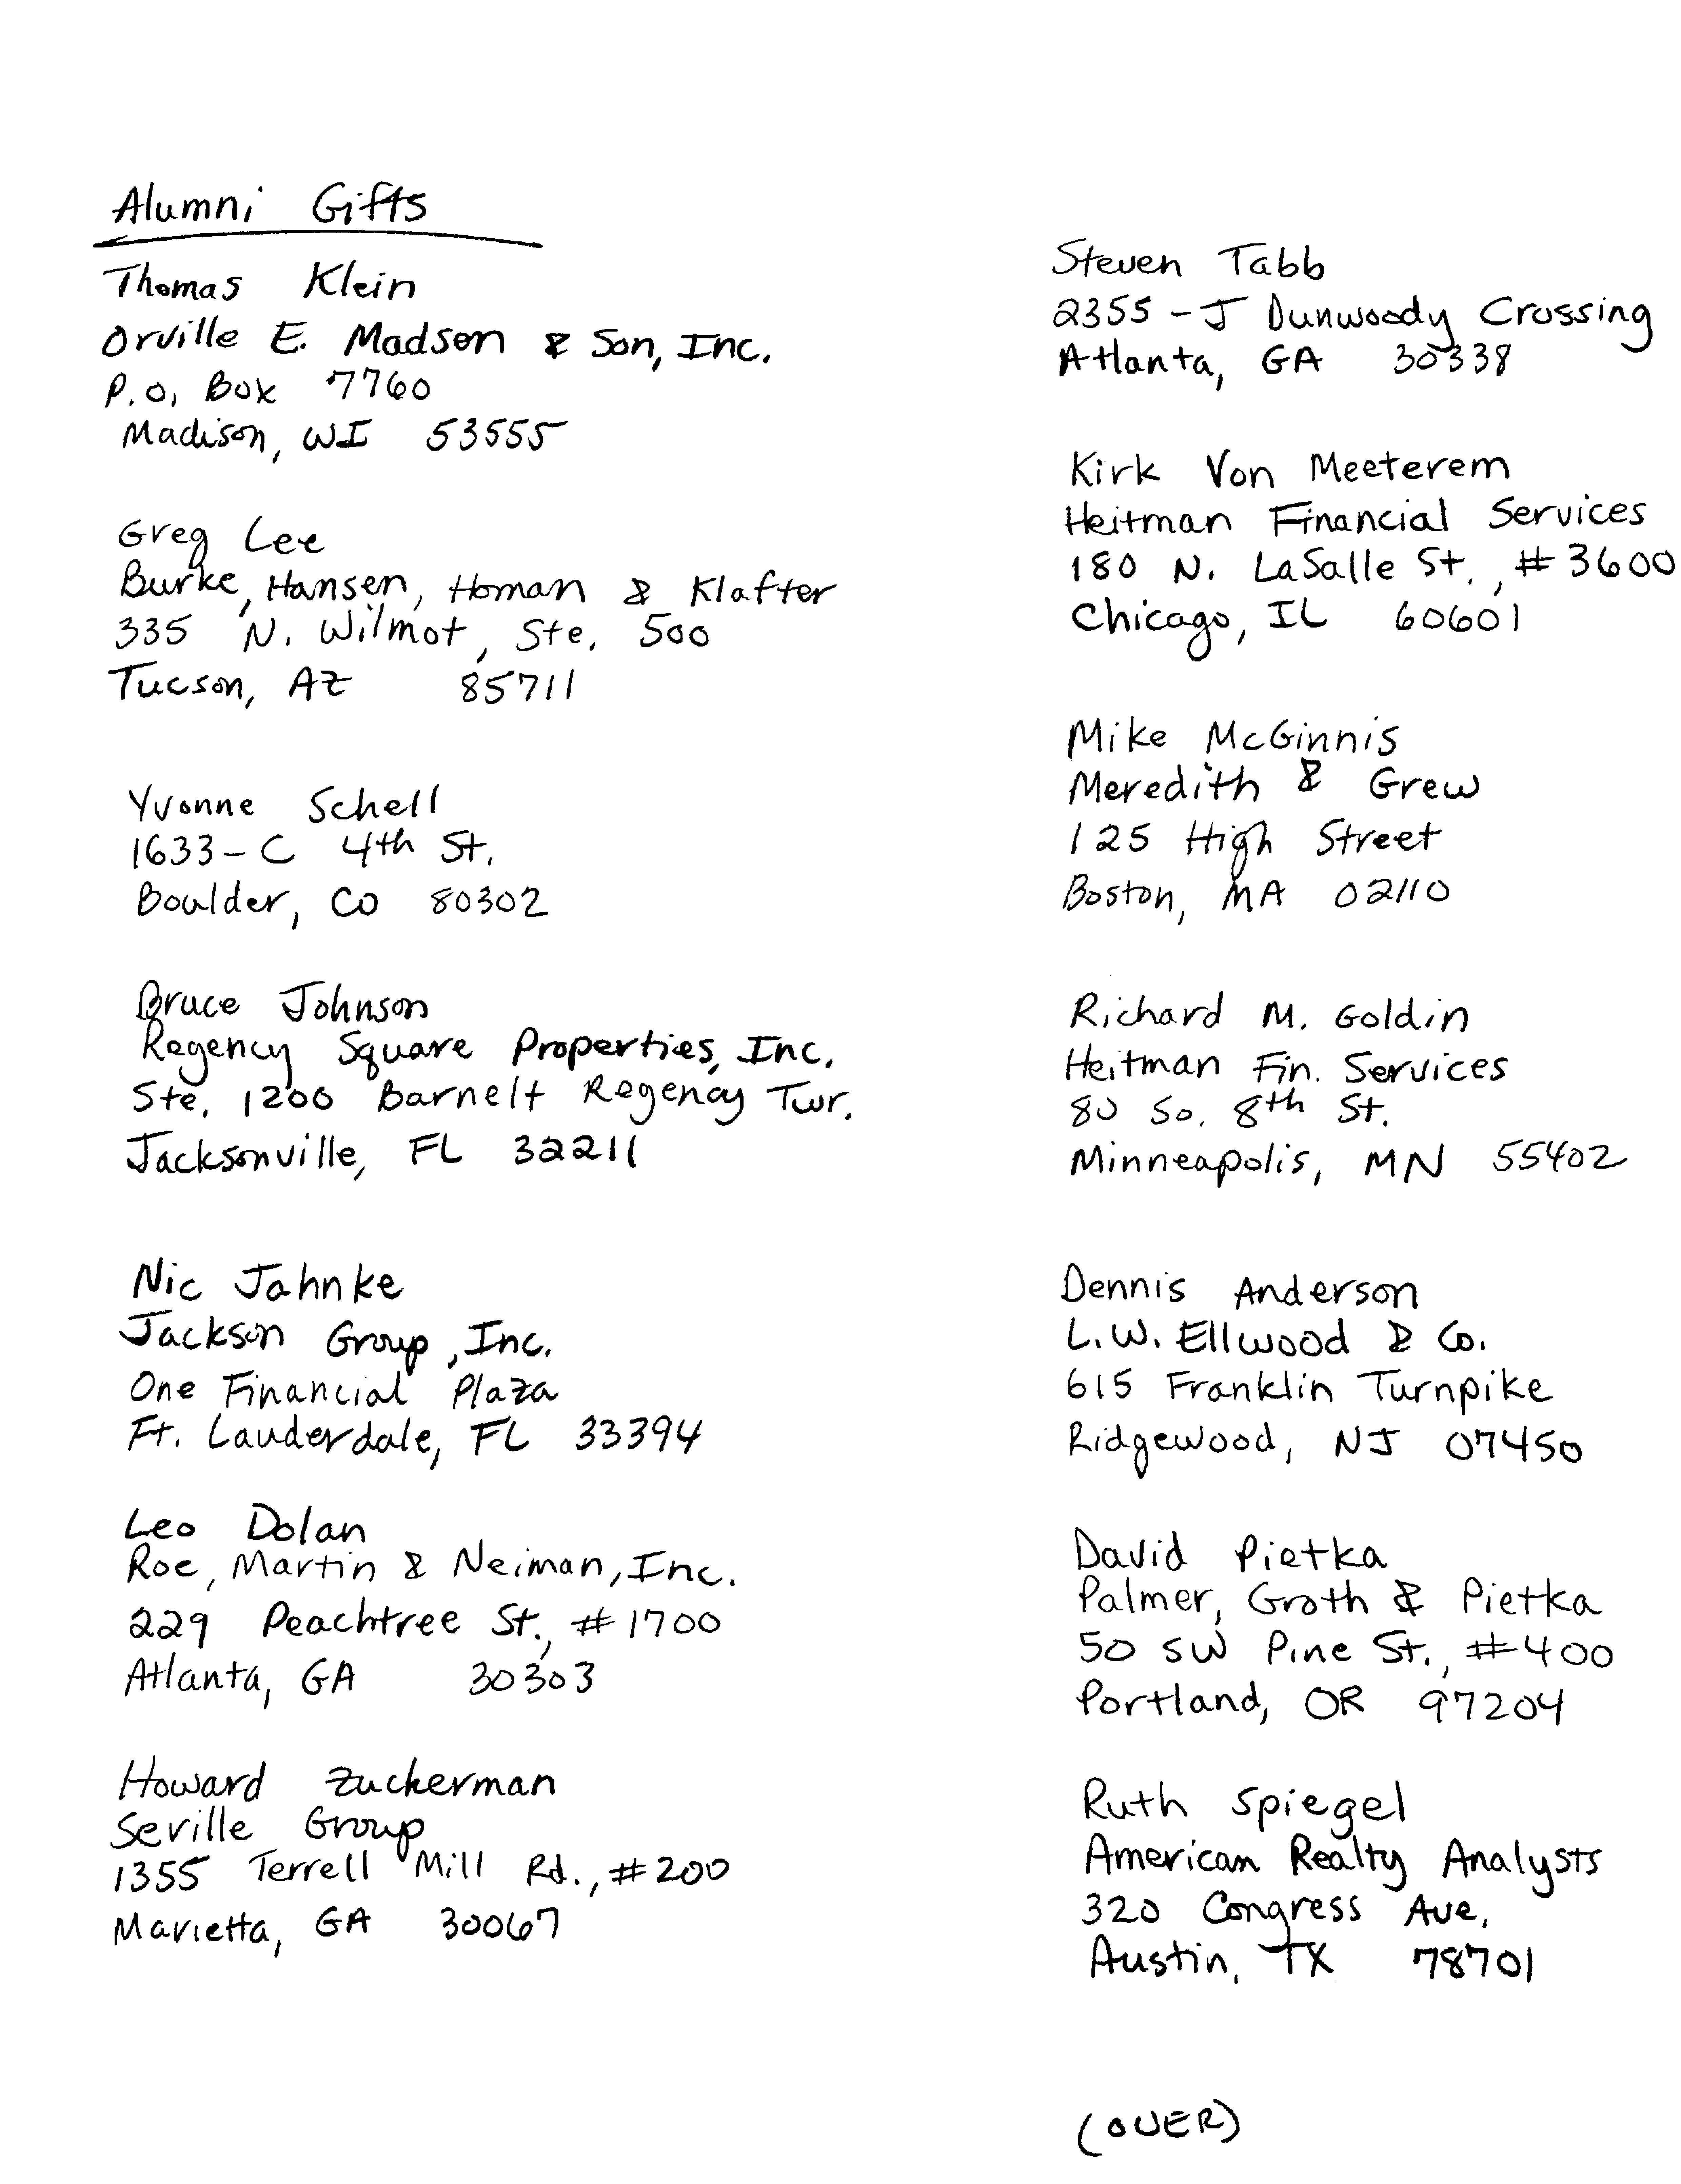 Alumni Gifts
Thomas Klein
Orville E. Madsen & Son, Inc.
P.O. Box 7760
Madison, WI 53555
Greg Lee
Burke, Hansen, Homan & Klafter
335 N. Wilmot, Ste. 500
Tucson, AZ 85711
Yvonne Schell
1633-C 4th St.
Boulder, CO 80302
Bruce Johnson
Regency Square Properties, Inc.
Ste. 1200 Barnelt Regency Twr.
Jacksonville, FL 32211
Nic Jahnke
Jackson Group, Inc.
One Financial Plaza
Ft. Lauderdale, FL 33394
Leo Dolan
Roe, Martin & Neiman, Inc.
229 Peachtree St., #1700
Atlanta, GA 30303
Howard Zuckerman
Seville Group
1355 Terrell Mill Rd., #200
Marietta, GA 30067
Steven Tabb
2355-J Dunwoody Crossing
Atlanta, GA 30338
Kirk Von Meeterem
Heitman Financial Services
180 N. LaSalle St., #3600
Chicago, IL 60601
Mike McGinnis
Meredith & Grew
125 High Street
Boston, MA 02110
Richard M. Goldin
Heitman Fin. Services
80 So. 8th St.
Minneapolis, MN 55402
Dennis Anderson
L.W. Ellwood & Co.
615 Franklin Turnpike
Ridgewood, NJ 07450
David Pietka
Palmer, Groth & Pietka
50 SW Pine St., #400
Portland, OR 97204
Ruth Spiegel
American Realty Analysts
320 Congress Ave.
Austin, TX 78701
(OVER)